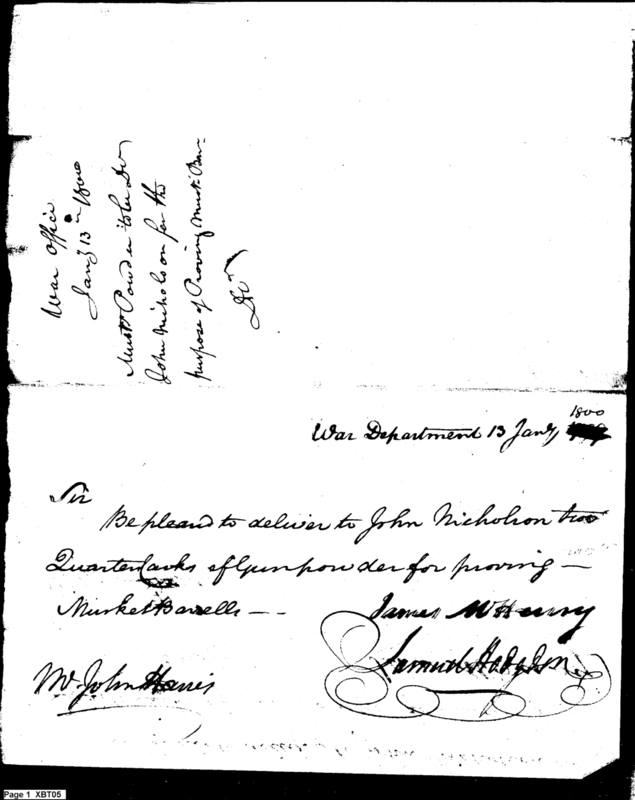 War Office
Jany 13th 1800
Musk Powder to be Dd
John Nicholson for the
purpose of Proving Musk Bar-
War Department 13 Jany 1800
Sir
Be pleasd to deliver to John Nicholson two
Quarter Casks of Gunpowder for proving —
Musket Barells — –
James McHenry
Samuel Hodgdon
Mr John Harris
Page 1 XBT05